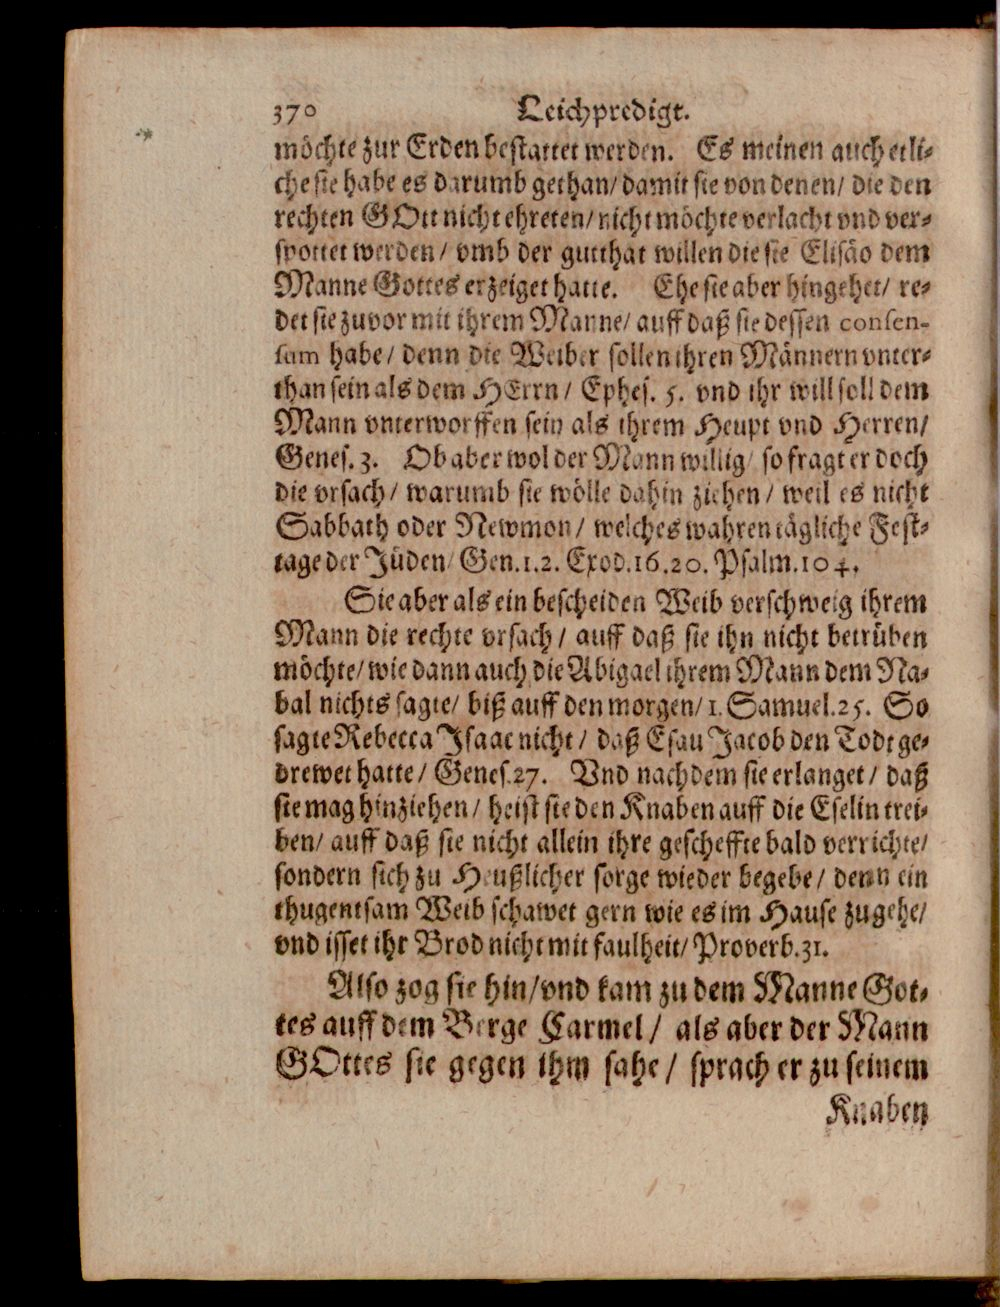 370 Leichpredigt.
möchte zur Erden bestattet werden. Es meinen auch etli-
che sie habe es darumb gethan/ damit sie von denen/ die den
rechten GOtt nicht ehreten/ nicht möchte verlacht vnd ver-
spottet werden/ vmb der gutthat willen die sie Elisäo dem
Manne Gottes erzeiget hatte. Ehe sie aber hingehet/ re-
det sie zuvor mit ihrem Manne/ auff daß sie dessen consen-
sum habe/ denn die Weiber sollen ihren Männern vnter-
than sein als dem HErrn/ Ephes. 5. vnd ihr will soll dem
Mann vnterworffen sein als ihrem Heupt vnd Herren/
Genes. 3. Ob aber wol der Mann willig/ so fragt er doch
die vrsach/ warumb sie wölle dahin ziehen/ weil es nicht
Sabbath oder Newmon/ welches wahren tägliche Fest-
tage der Jüden/ Gen.1.2. Exod.16.20. Psalm.104.
Sie aber als ein bescheiden Weib verschweig ihrem
Mann die rechte vrsach/ auff daß sie ihn nicht betrüben
möchte/ wie dann auch die Abigael ihrem Mann dem Na-
bal nichts sagte/ biß auff den morgen/ 1. Samuel.25. So
sagte Rebecca Isaac nicht/ daß Esau Jacob den Todt ge-
drewet hatte/ Genes.27. Vnd nachdem sie erlanget/ daß
sie mag hinziehen/ heist sie den Knaben auff die Eselin trei-
ben/ auff daß sie nicht allein ihre gescheffte bald verrichte/
sondern sich zu Heußlicher sorge wieder begebe/ denn ein
thugentsam Weib schawet gern wie es im Hause zugehe/
vnd isset ihr Brod nicht mit faulheit/ Proverb.31.
Also zog sie hin/ vnd kam zu dem Manne Got-
tes auff dem Berge Carmel/ als aber der Mann
GOttes sie gegen ihm sahe/ sprach er zu seinem
Knaben